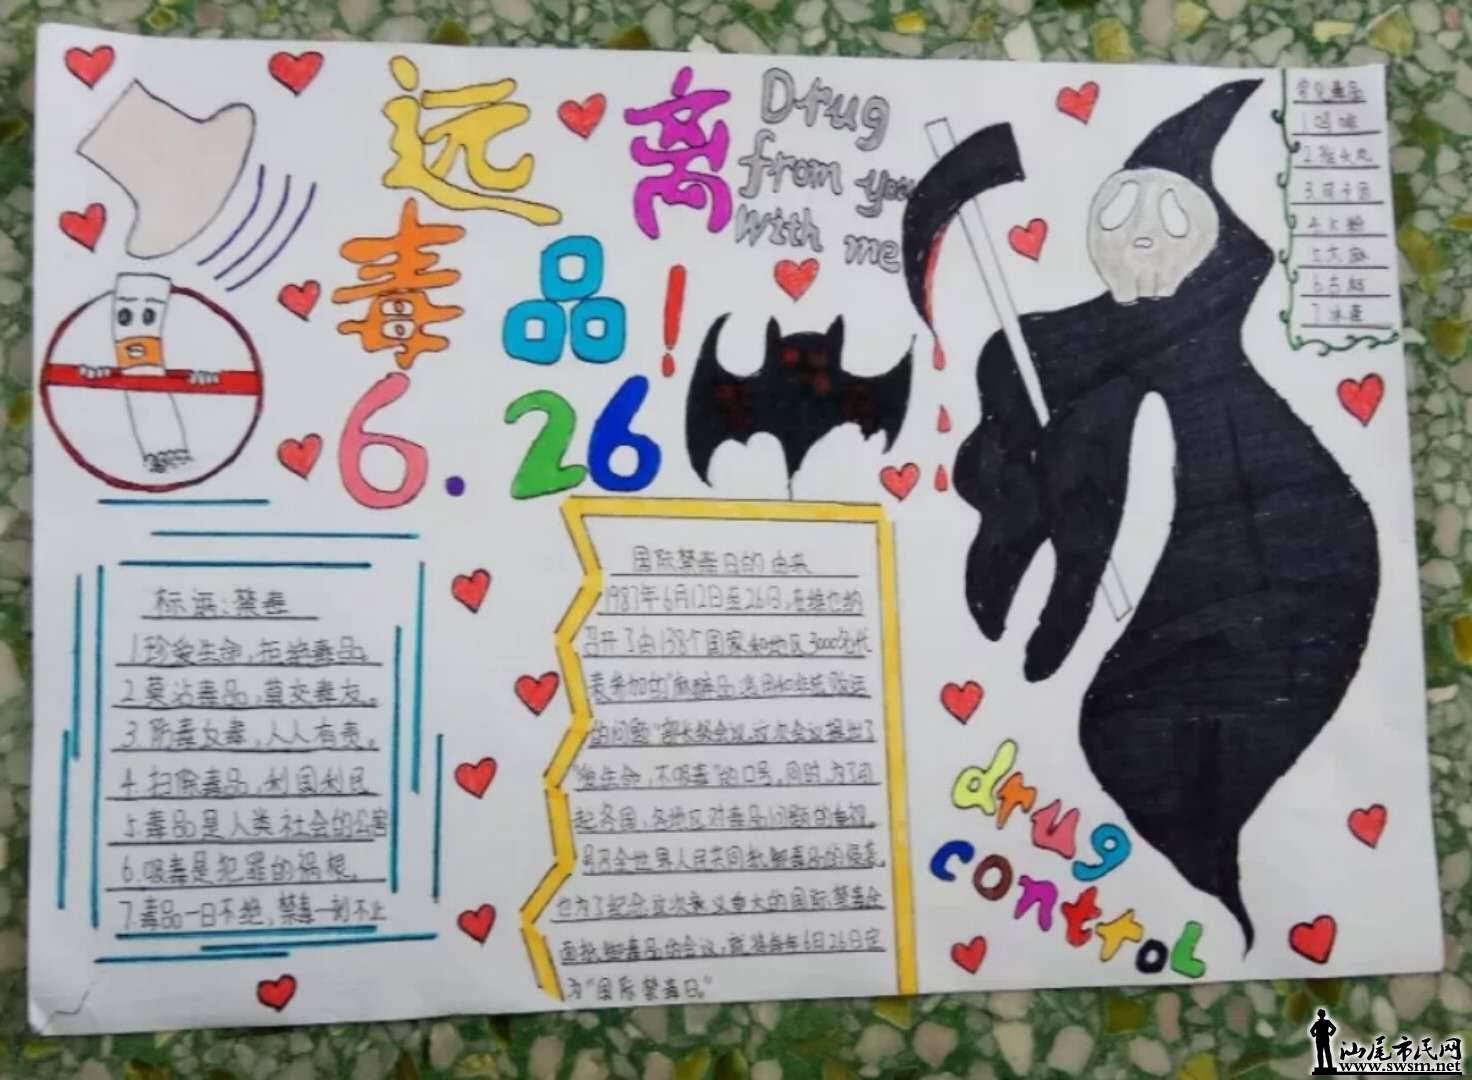 远离
毒品!
6.26
Drug
from you
With me
常见毒品
1.吗啡
2.摇头丸
3.可卡因
4.K粉
5.大麻
7.冰毒
标语:禁毒
1.珍爱生命,拒绝毒品。
2.莫沾毒品,莫交毒友。
3.防毒反毒,人人有责。
4.扫除毒品,利国利民
5.毒品是人类社会的公害
6.吸毒是犯罪的祸根。
7.毒品一日不绝,禁毒一刻不止
国际禁毒日的由来
1987年6月12日至26日,在维也纳
召开了由138个国家和地区3000名代
表参加的"麻醉品滥用和非法贩运
的问题"部长级会议,这次会议提出了
"爱生命,不吸毒"的口号。同时,为了引
起各国,各地区对毒品问题的重视。
号召全世界人民共同抵御毒品的侵害。
也为了纪念这次意义重大的国际禁毒全
面抵御毒品的会议,就将每年6月26日定
为"国际禁毒日。"
drug
control
汕尾市民网
www.swsm.net